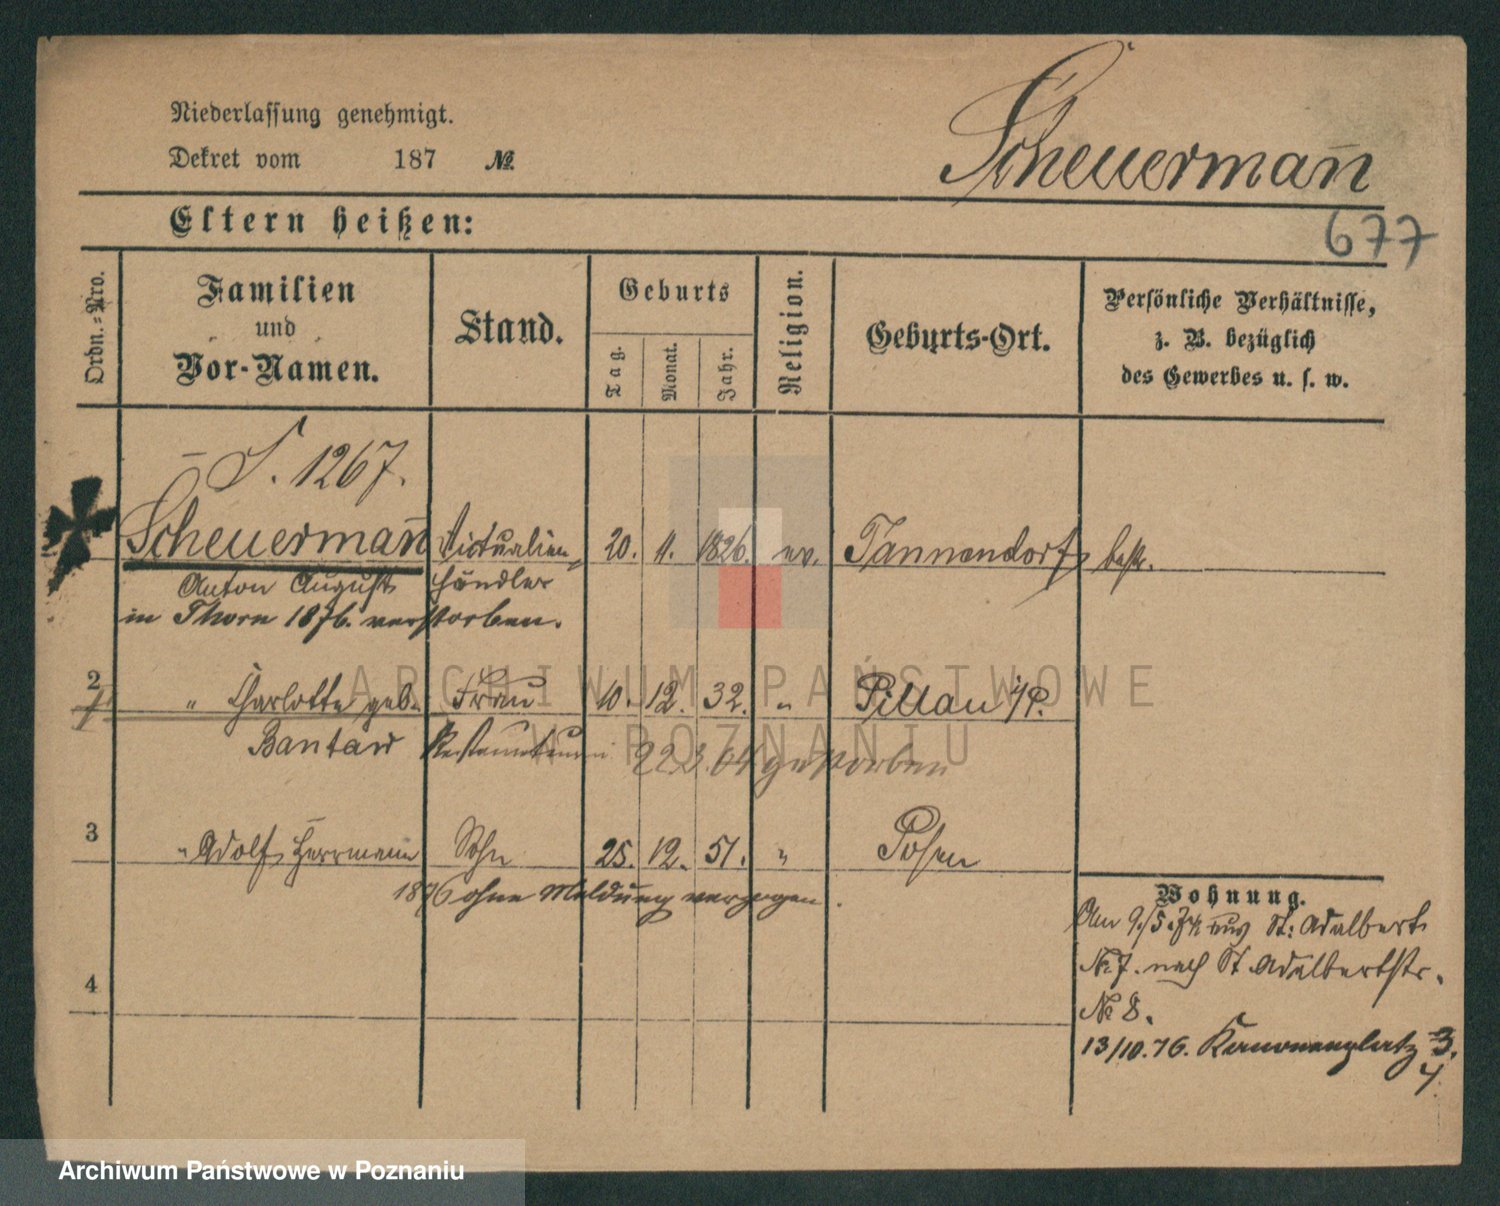 Niederlassung genehmigt.
Dekret vom 187 №
Scheuermañ
Eltern heißen:
677
Ordn.=Nro.
Familien
und
Vor-Namen.
Stand.
Geburts
Tag.
Monat.
Jahr.
Religion.
Geburts-Ort.
Persönliche Verhältnisse,
z. B. bezüglich
des Gewerbes u. s. w.
S. 1267.
Scheuermañ Victualien= 20. 11. 1826. ev. Tannendorf
Anton August händler
in Thorn 1876. verstorben.
2 " Charlotte geb. Frau 10. 12. 32. " Pillau i/P.
1
22.3.04 gestorben
3 " Adolf Herrmann Sohn 25. 12. 51. " Posen
1876 ohne Meldung verzogen.
4
Wohnung.
Am 9/5.74 aus St: Adalbert
№ 7. nach St. Adalbertstr.
№ 8.
13/10.76. Kanonenplatz 3.
4.
ARCHIWUM PAŃSTWOWE
W POZNANIU
Archiwum Państwowe w Poznaniu